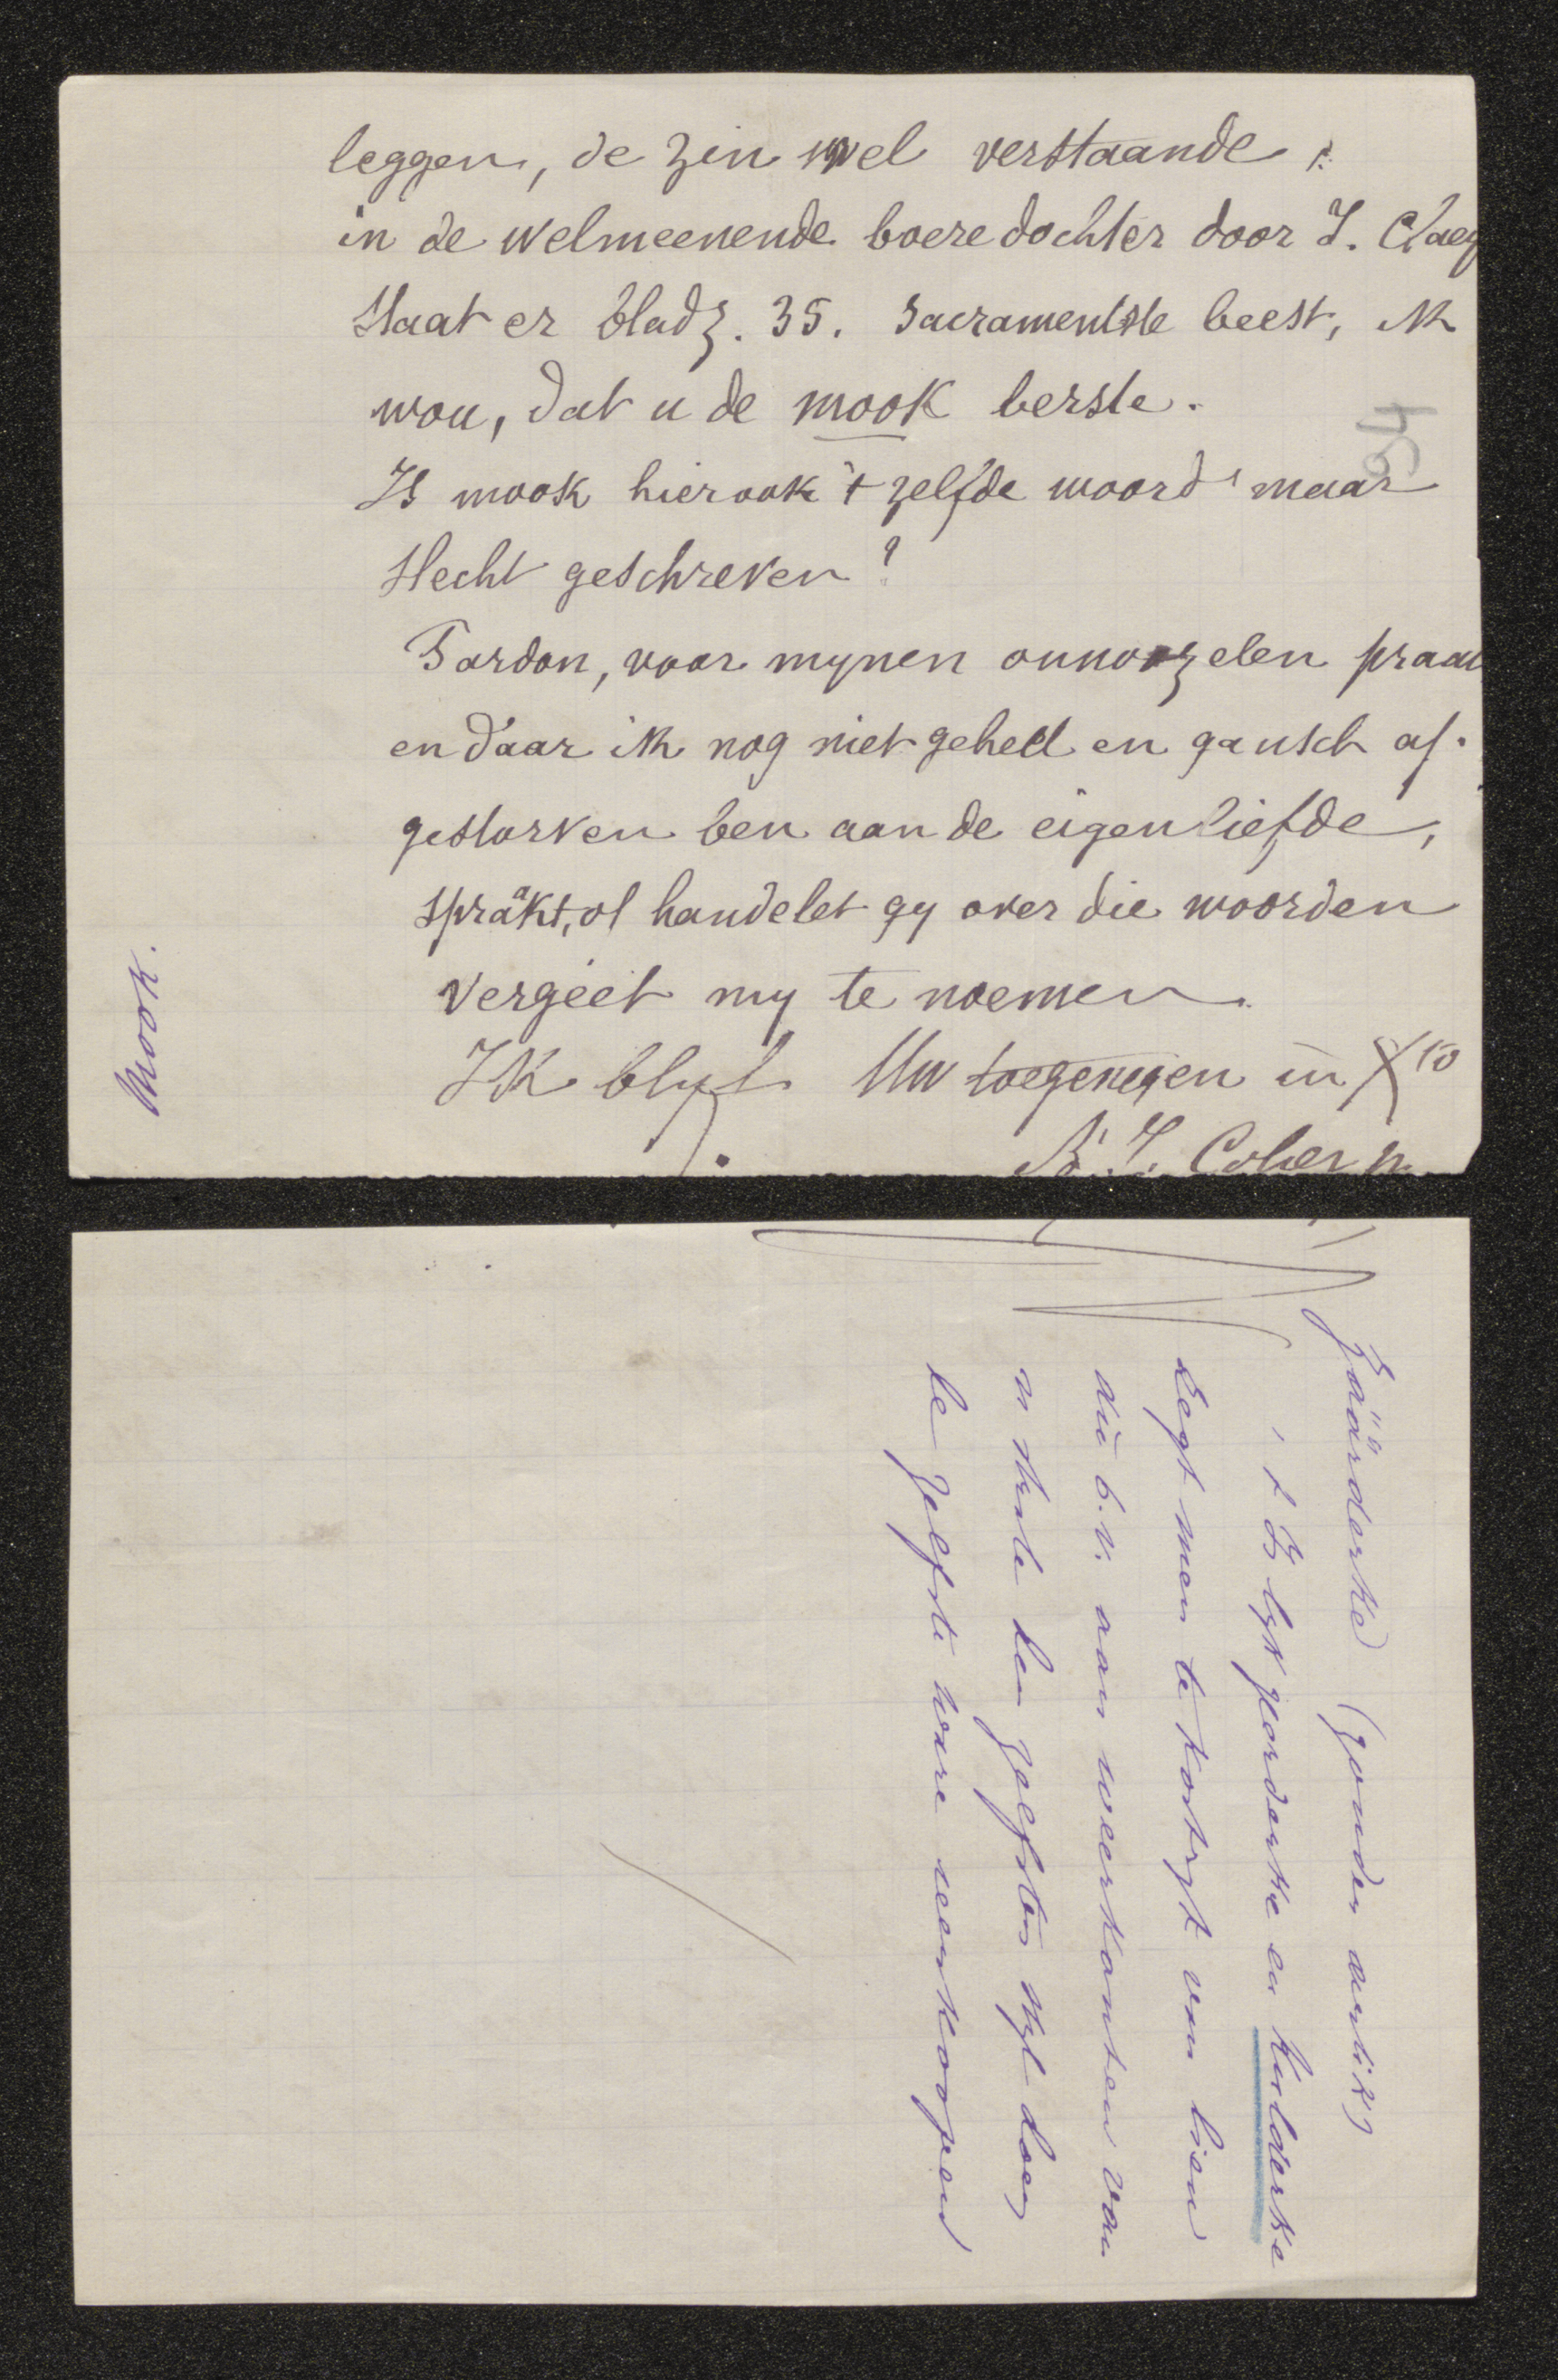 leggen, de zin wel verstaande.
in de welmeenende boeredochter door J. Claey
staat er bladz. 35. Sacramentste beest, ik
wou, dat u de mook berste.
94
Is mook hier ook 't zelfde woord maar
slecht geschreven?
Pardon, voor mynen onnoozelen praat
en daar ik nog niet geheel en gansch af-
gestorven ben aan de eigenliefde,
spraakt, of handelet gy over die woorden
vergeet my te noemen.
Ik blyf Uw toegenegen in Xto
Mook.
(zonder artik)
en Kerlderke
zegt men te Kortryk van bien
die b.v. aan weerkanten van
'n strate den zelfsten styl doen
de zelfste ware verkoopen